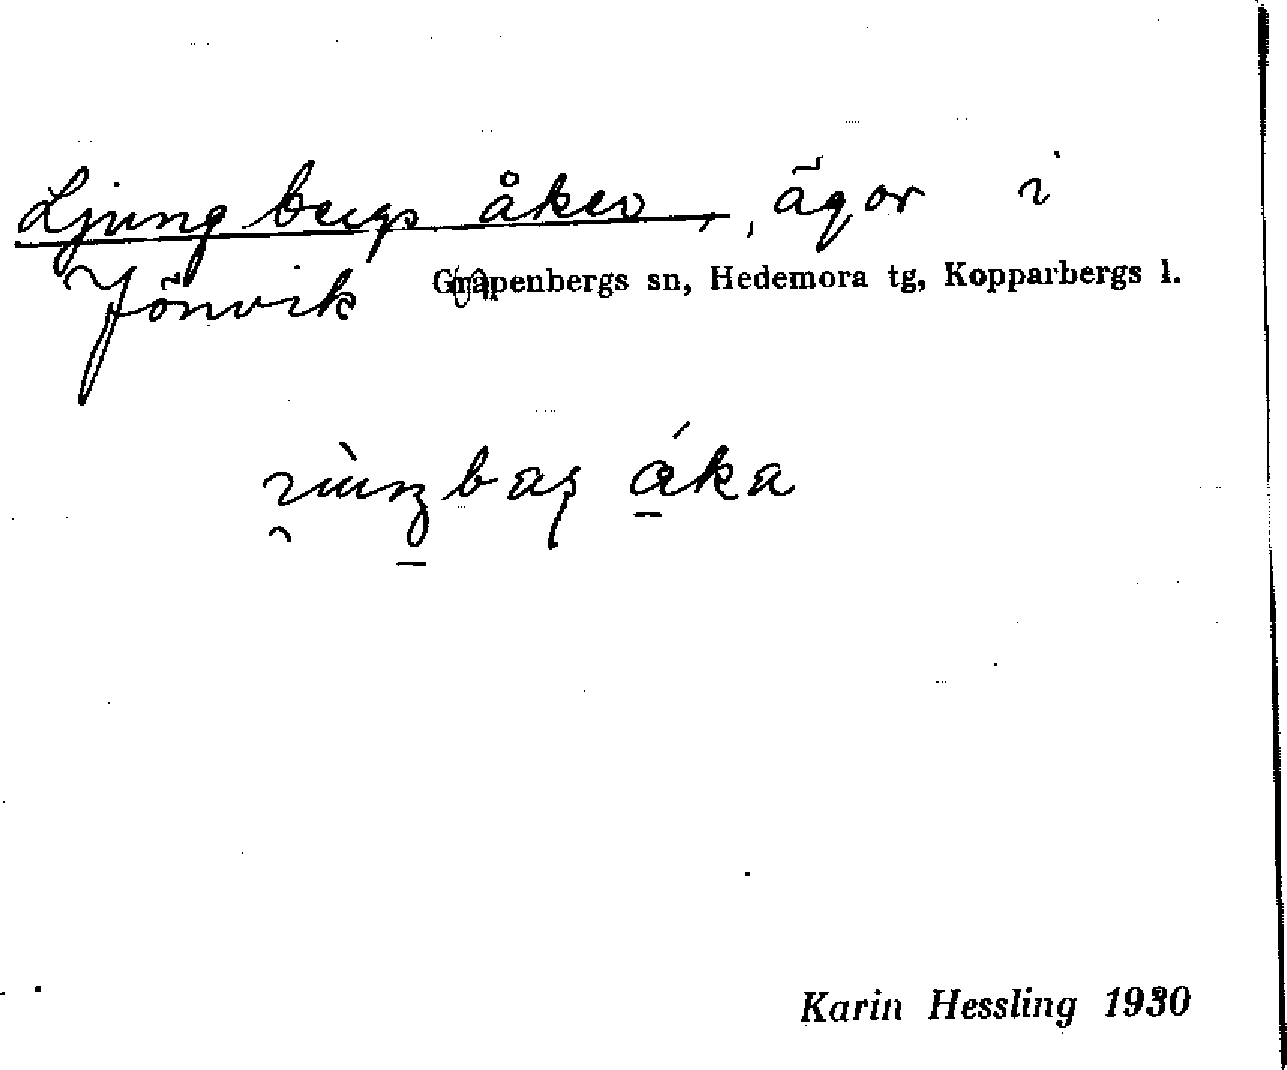 Ljungbergs åker, ägor i
Jönvik Grapenbergs sn, Hedemora tg, Kopparbergs l.
Karin Hessling 1930